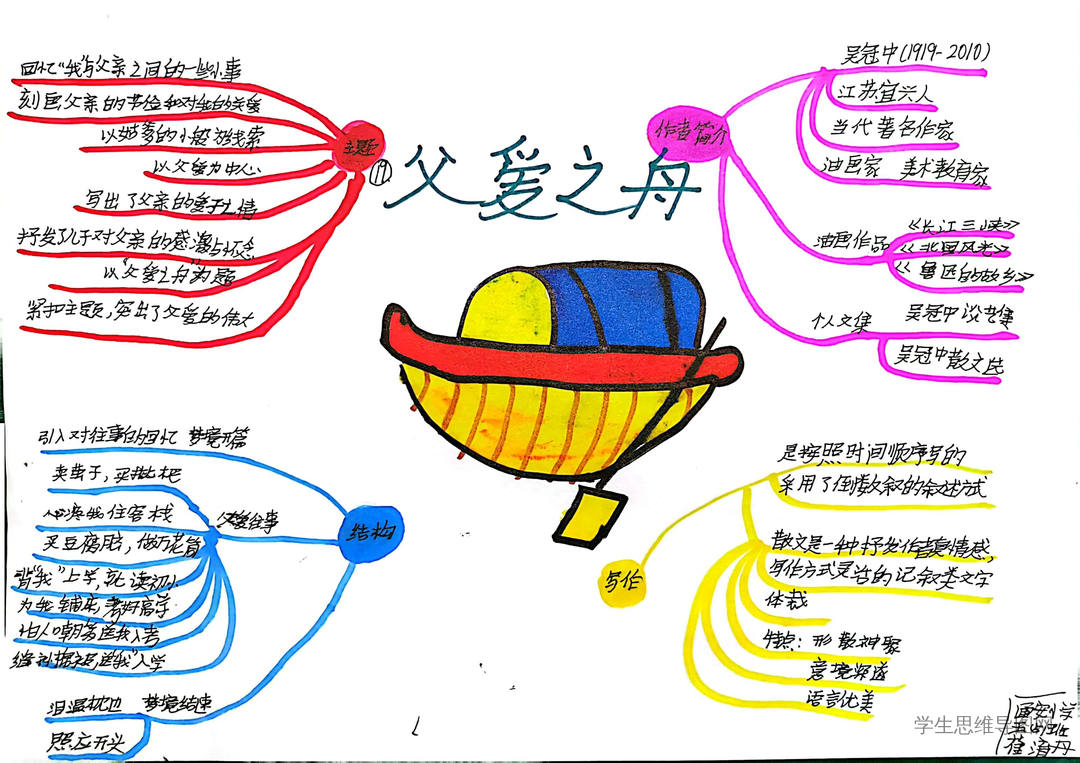 父爱之舟
19
主题
回忆"我"与父亲之间的一些小事
刻画父亲的节俭和对我的关爱
以姑爹的小船为线索
以父爱为中心
写出了父亲的爱子之情
抒发了儿子对父亲的感激与怀念
以"父爱之舟"为题
紧扣主题,突出了父爱的伟大
作者简介
吴冠中(1919-2010)
江苏宜兴人
当代著名作家
油画家 美术教育家
油画作品
《长江三峡》
《北国风光》
《鲁迅的故乡》
个人文集
吴冠中谈艺集
吴冠中散文选
结构
引入对往事的回忆 梦境开篇
父爱往事
卖茧子,买枇杷
心疼我住客栈
买豆腐脑,做万花筒
背"我"上学,就读初小
为我铺床
怕人嘲
"我"入学
泪湿枕边 梦境结束
照应开头
写作
是按照时间顺序写的
采用了倒叙的叙述方式
散文是一种抒发作者真情感,
写作方式灵活的记叙类文字
体裁
特点:形散神聚
意境深邃
语言优美
学生思维导图网